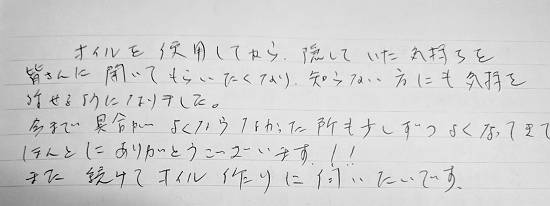 オイルを使用してから、隠していた気持ちを
皆さんに聞いてもらいたくなり、知らない方にも気持を
話せるようになりました。
今まで具合がよくならなかった所も少しずつよくなってきて
ほんとにありがとうございます。!!
また続けてオイル作りに伺いたいです。